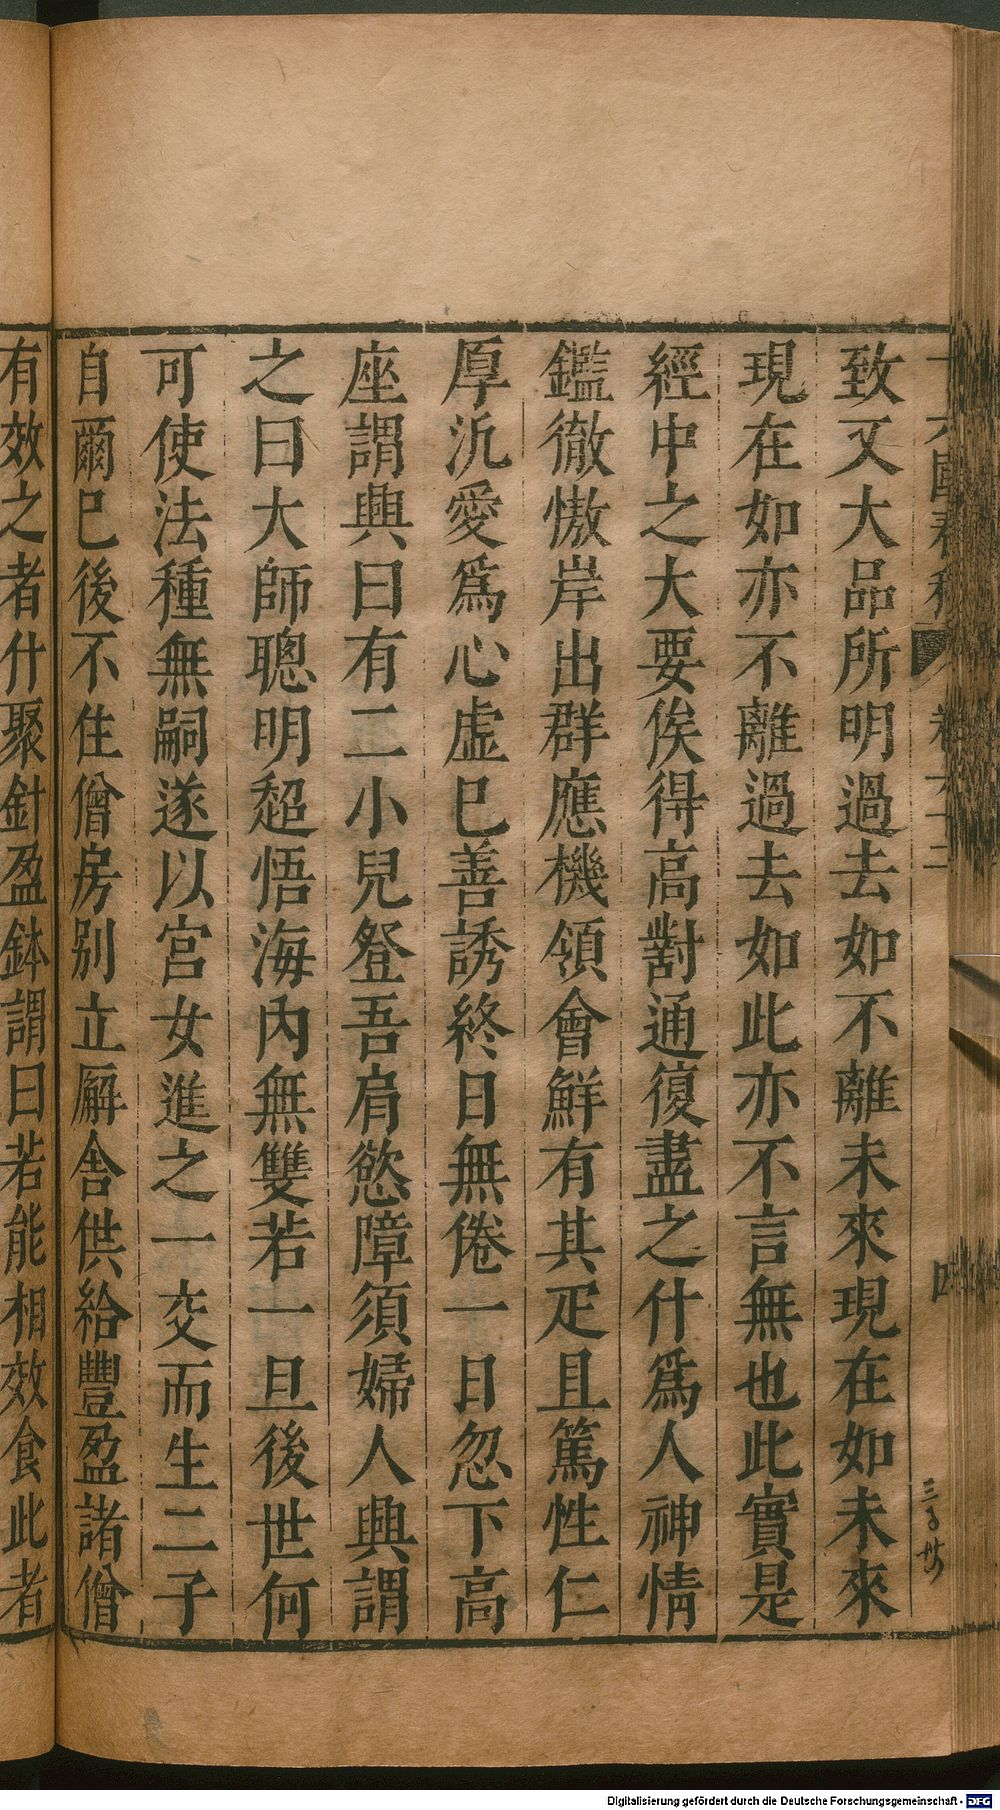 致又大品所明過去如不離未來現在如未來
現在如亦不離過去如此亦不言無也此實是
經中之大要俟得高對通復盡之什爲人神情
鑑徹慠岸出群應機領會鮮有其疋且篤性仁
厚汎愛爲心虛已善誘終日無倦一日忽下高
座謂興曰有二小兒登吾肩慾障須婦人興謂
之曰大師聰明超悟海內無雙若一旦後世何
可使法種無嗣遂以宮女進之一交而生二子
自爾已後不住僧房别立廨舍供給豐盈諸僧
有效之者什聚針盈鉢謂曰若能相效食此者
Digitalisierung gefördert durch die Deutsche Forschungsgemeinschaft - DFG